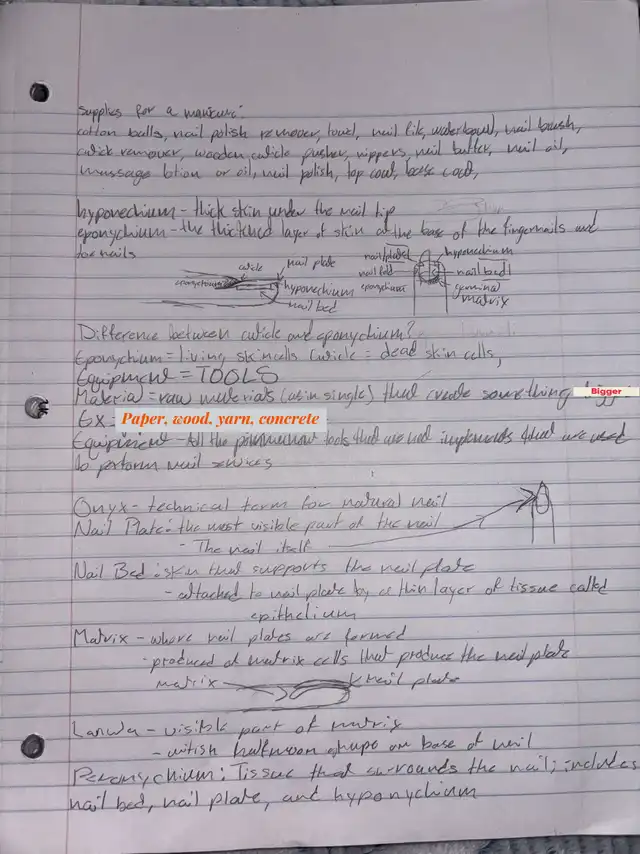 supplies for a manicure:
cotton balls, nail polish remover, towel, nail file, waterbowl, nail brush,
cuticle remover, wooden cuticle pusher, nippers, nail buffer, nail oil,
massage lotion or oil, nail polish, top coat, base coat,
hyponechium - thick skin under the nail tip
eponychium - the thickened layer of skin at the base of the fingernails and
toenails
cuticle
nail plate
eponychium
hyponechium
nail bed
nail plate
hyponechium
nail fold
nail bed
eponychium
germinal
matrix
Difference between cuticle and eponychium?
Eponychium = living skin cells cuticle = dead skin cells,
Equipment = TOOLS
Material = raw materials (as in single) that create something Bigger
Ex - Paper, wood, yarn, concrete
Equipment - All the tools that are used implements that are used
to perform nail services
Onyx - technical term for natural nail
Nail Plate: the most visible part of the nail
- The nail itself
Nail Bed: skin that supports the nail plate
- attached to nail plate by a thin layer of tissue called
epithelium
Matrix - where nail plates are formed
- produced of matrix cells that produce the nail plate
matrix
nail plate
- visible part of matrix
- halfmoon shape on base of nail
: Tissue that surrounds the nail; includes
nail bed, nail plate, and hyponychium